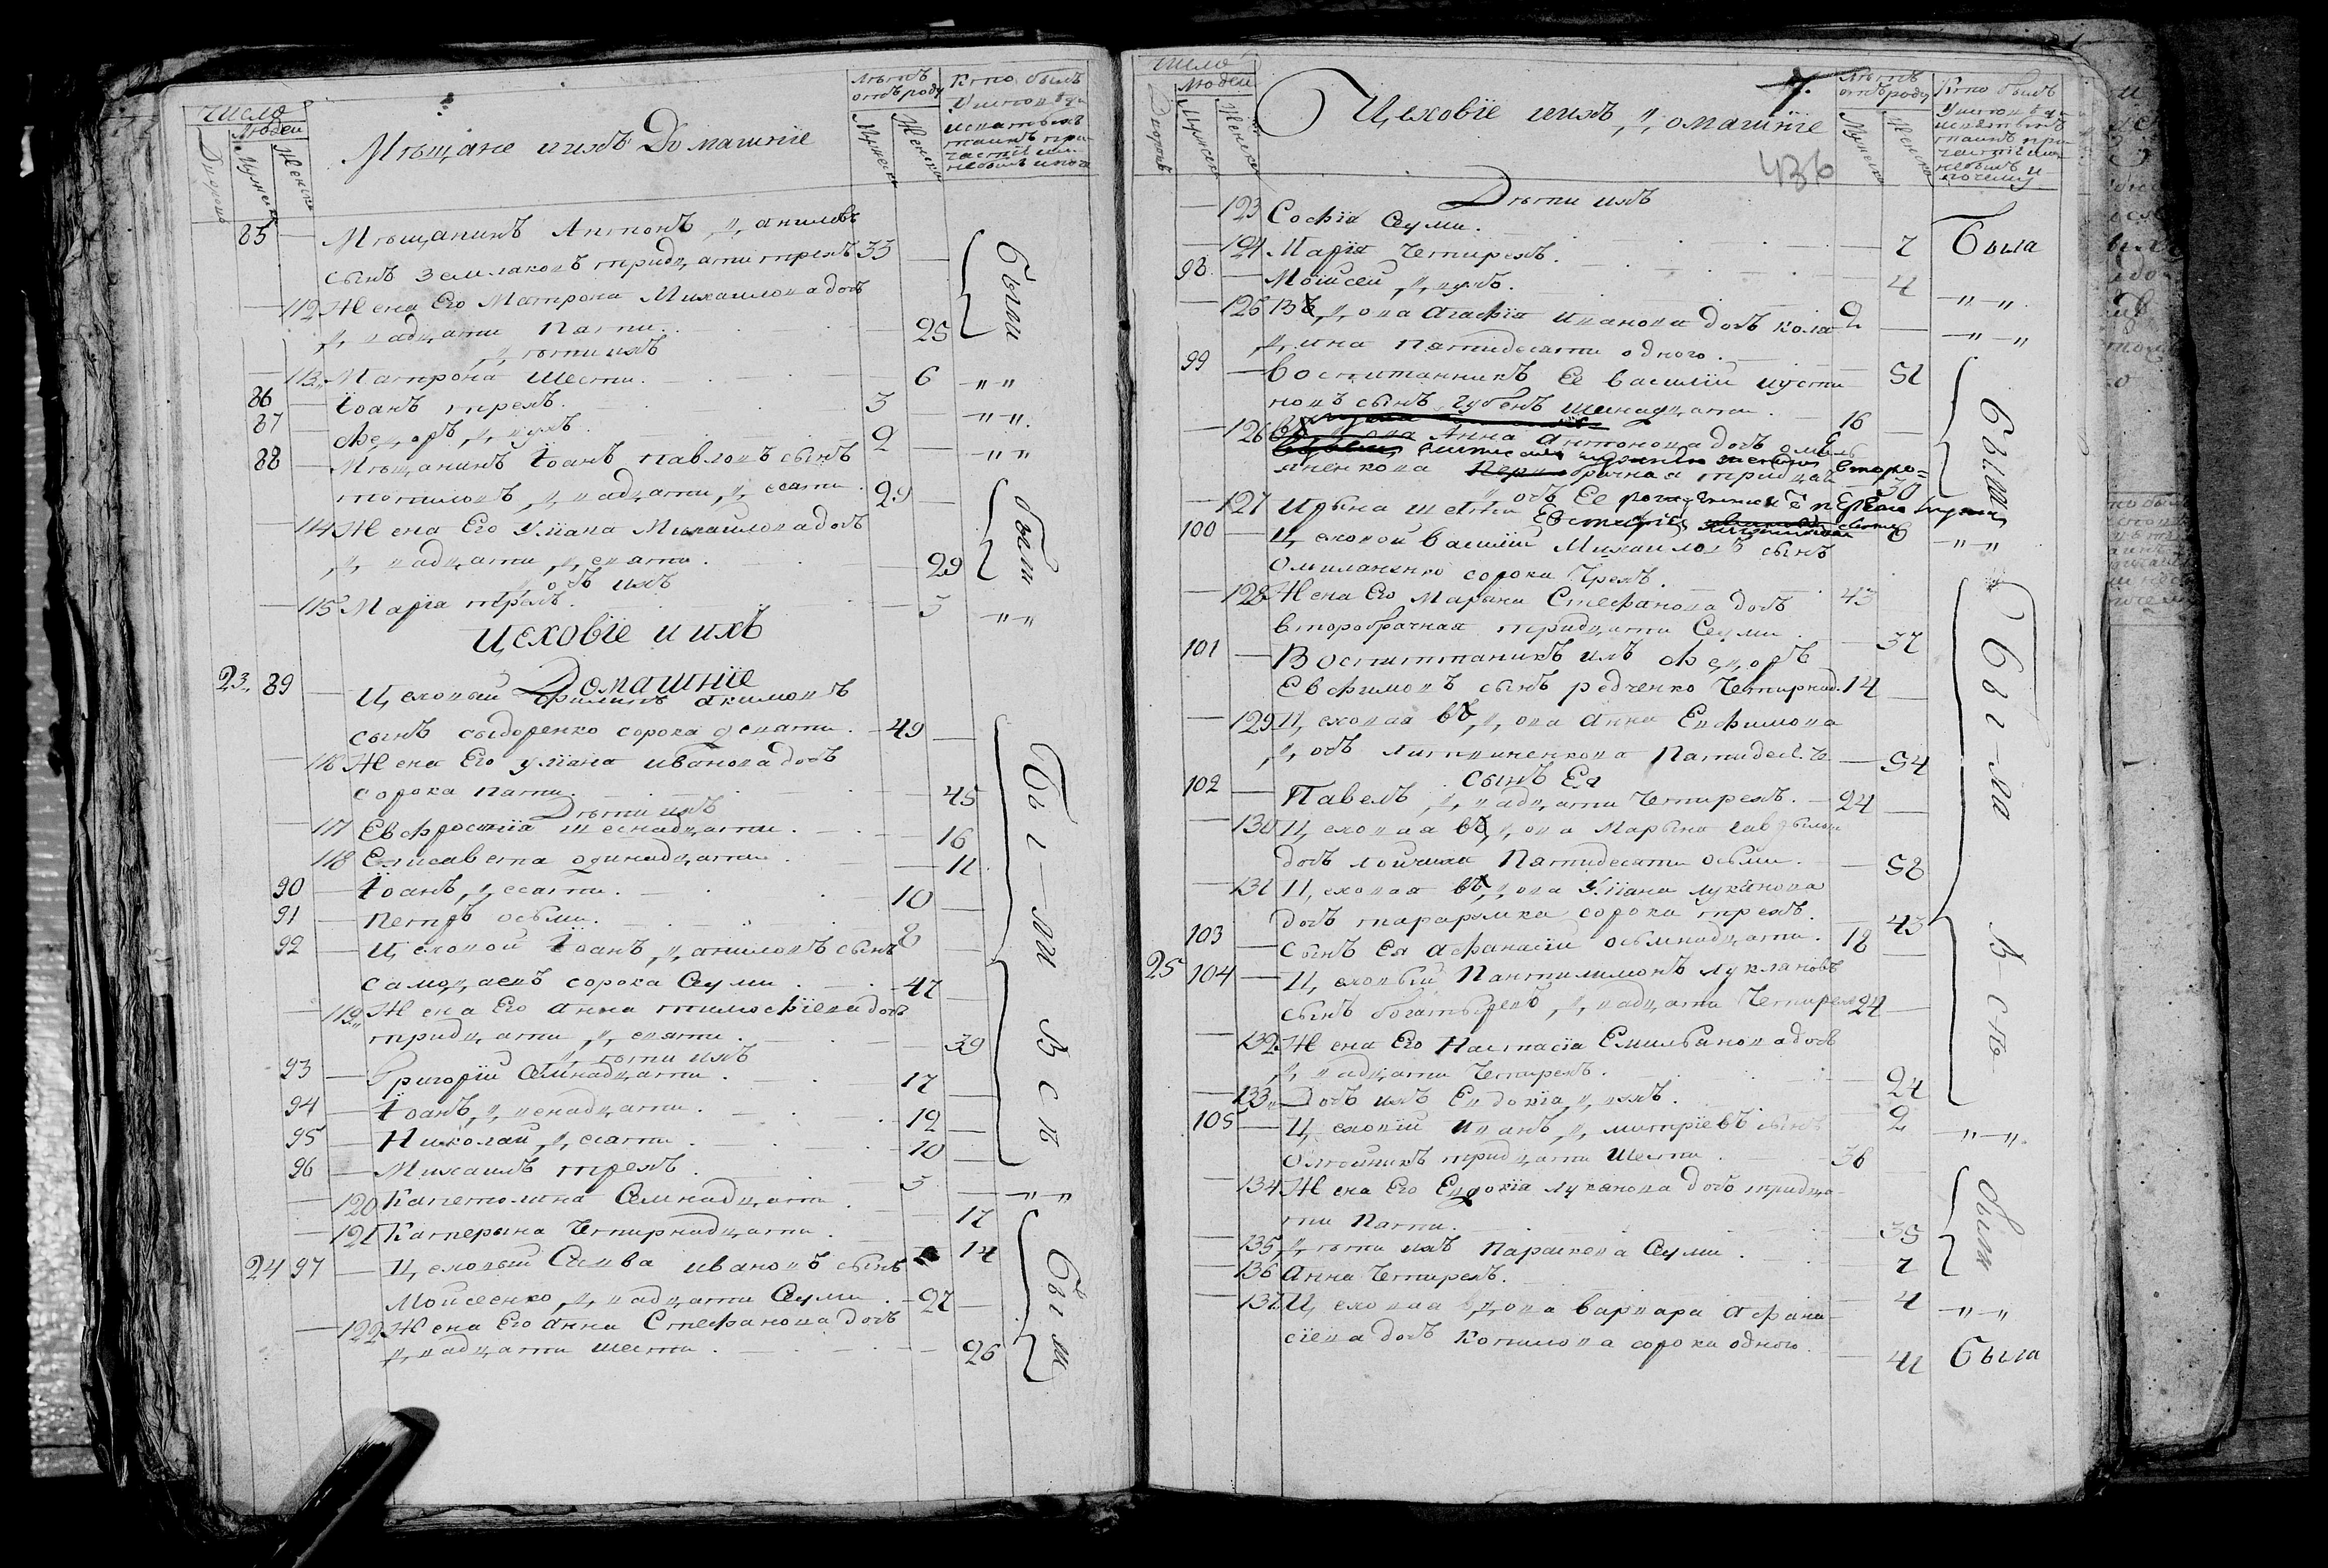 Число
Людей
Дворовъ
Мужеска
Женска
Мѣщане и ихъ Домашніе
Лѣтъ отъ роду
Мужеска
Женска
Кто былъ
у исповѣди
и святыхъ
таинъ при-
частія или
не былъ и поче
85 — Мѣщанинъ Антонъ Даниловъ
сынъ Землаковъ тридцати трехъ 33 —
— 112 Жена Его Матрона Михаилова дочь
двадцати Пяти. 25
Были
Дѣти ихъ
— 113 Матрона Шести. 6 „ „
86 — Іоанъ трехъ. 3 — „ „
87 — Феодоръ двухъ 2 — „ „
88 — Мѣщанинъ Іоанъ Павловъ сынъ
Томиловъ двадцати девяти 29 —
— 114 Жена Его Уліана Михайлова дочь
двадцати девяти. — 29
Были
дочь ихъ
— 115 Марія трехъ. — 3 „ „
Цеховіе и ихъ
Домашніе
23 89 — Цеховый Филипъ Акимовъ
сынъ Сыдоренко сорока девяти. 49 —
— 116 Жена Его Уліана Иванова дочь
сорока Пяти. — 45
Дѣти ихъ
— 117 Евфросинія шеснадцати. — 16
— 118 Елисавета одинадцати. — 11
90 — Іоанъ десяти. 10 —
91 — Петръ осьми. 8
92 — Цеховой Іоанъ Даниловъ сынъ
Самодаевъ сорока Седми 47 —
— 119 Жена Его Анна Тимофіева дочь
тридцати девяти. — 39
дѣти ихъ
93 — Григорій Семнадцати. 17 —
94 — Іоанъ двенадцати. 12 —
95 — Николай десяти 10 —
96 — Михаилъ трехъ. 3 — „ „
Были Всѣ
— 120 Капетолина Семнадцати — 17
— 121 Катерына Четирнадцати. — 14
24 97 — Цеховый Савва Ивановъ сынъ
Мойсеенко двадцати Седми. 27 —
— 122 Жена Его Анна Стефанова дочь
двадцати шести. — 26
Были
Число
Людей
Дворовъ
Мужеска
Женска
Цеховіе и ихъ Домашніе
7.
436
Лѣтъ отъ роду
Мужеска
Женска
Кто былъ
у исповѣди
и святыхъ
таинъ при-
частія или
не былъ и
почему
Дѣти ихъ
— 123 Софія Седми. — 7 Была
— 124 Марія Четирехъ. — 4 „ „
98 — Мойсей двухъ. 2 — „ „
— 125 Вдова Агафія Иванова дочь Кола-
дина Пятидесяти одного. — 51
99 — Воспитанникъ Ее Василій Иусти-
новъ сынъ Губенъ шеснадцати. 16
— 126 Анна Антонова дочь Омель-
яненкова второ-
брачная тридцати — 30
Были
— 127 Ирына шести дочь Ее 6 „ „
100 — Цеховой Василій Михаиловъ сынъ
Омиланенко сорока Трехъ. 43
— 128 Жена Его Марына Стефанова дочь
второбрачная тридцати Седми. — 37
101 — Воспитаникъ ихъ Феодоръ
Евфимовъ сынъ Редченко Четирнад. 14 —
— 129 Цеховая вдова Анна Евфимова
дочь Литвиненкова Пятидес. Че — 54
сынъ Ея
102 — Павелъ двадцати Четирехъ. 24 —
— 130 Цеховая вдова Марына Гаврылова
дочь Лойчиха Пятидесяти Осьми. — 58
— 131 Цеховая вдова Уліана Лукянова
дочь Тарарыка сорока трехъ. — 43
103 — Сынъ Ея Афанасій осьмнадцати. 18 —
25 104 — Цеховый Пантилимонъ Лукяновъ
сынъ Богатырево двадцати Четирех 24 —
— 132 Жена Его Настасіа Емильянова дочь
двадцати Четирехъ. — 24
Была Всѣ
— 133 Дочь ихъ Евдокіа двухъ. — 2 „ „
105 — Цеховій Иванъ Дмитріевъ сынъ
Отойникъ тридцати Шести. 36
— 134 Жена Его Евдокіа Лукянова дочь тридца-
ти Пяти. — 35
— 135 дѣти ихъ Параскева Седми. — 7
Были
— 136 Анна Четирехъ. — 4 „ „
— 137 Цеховая вдова Варвара Афана-
сіева дочь Копилова сорока одного. — 41 Была